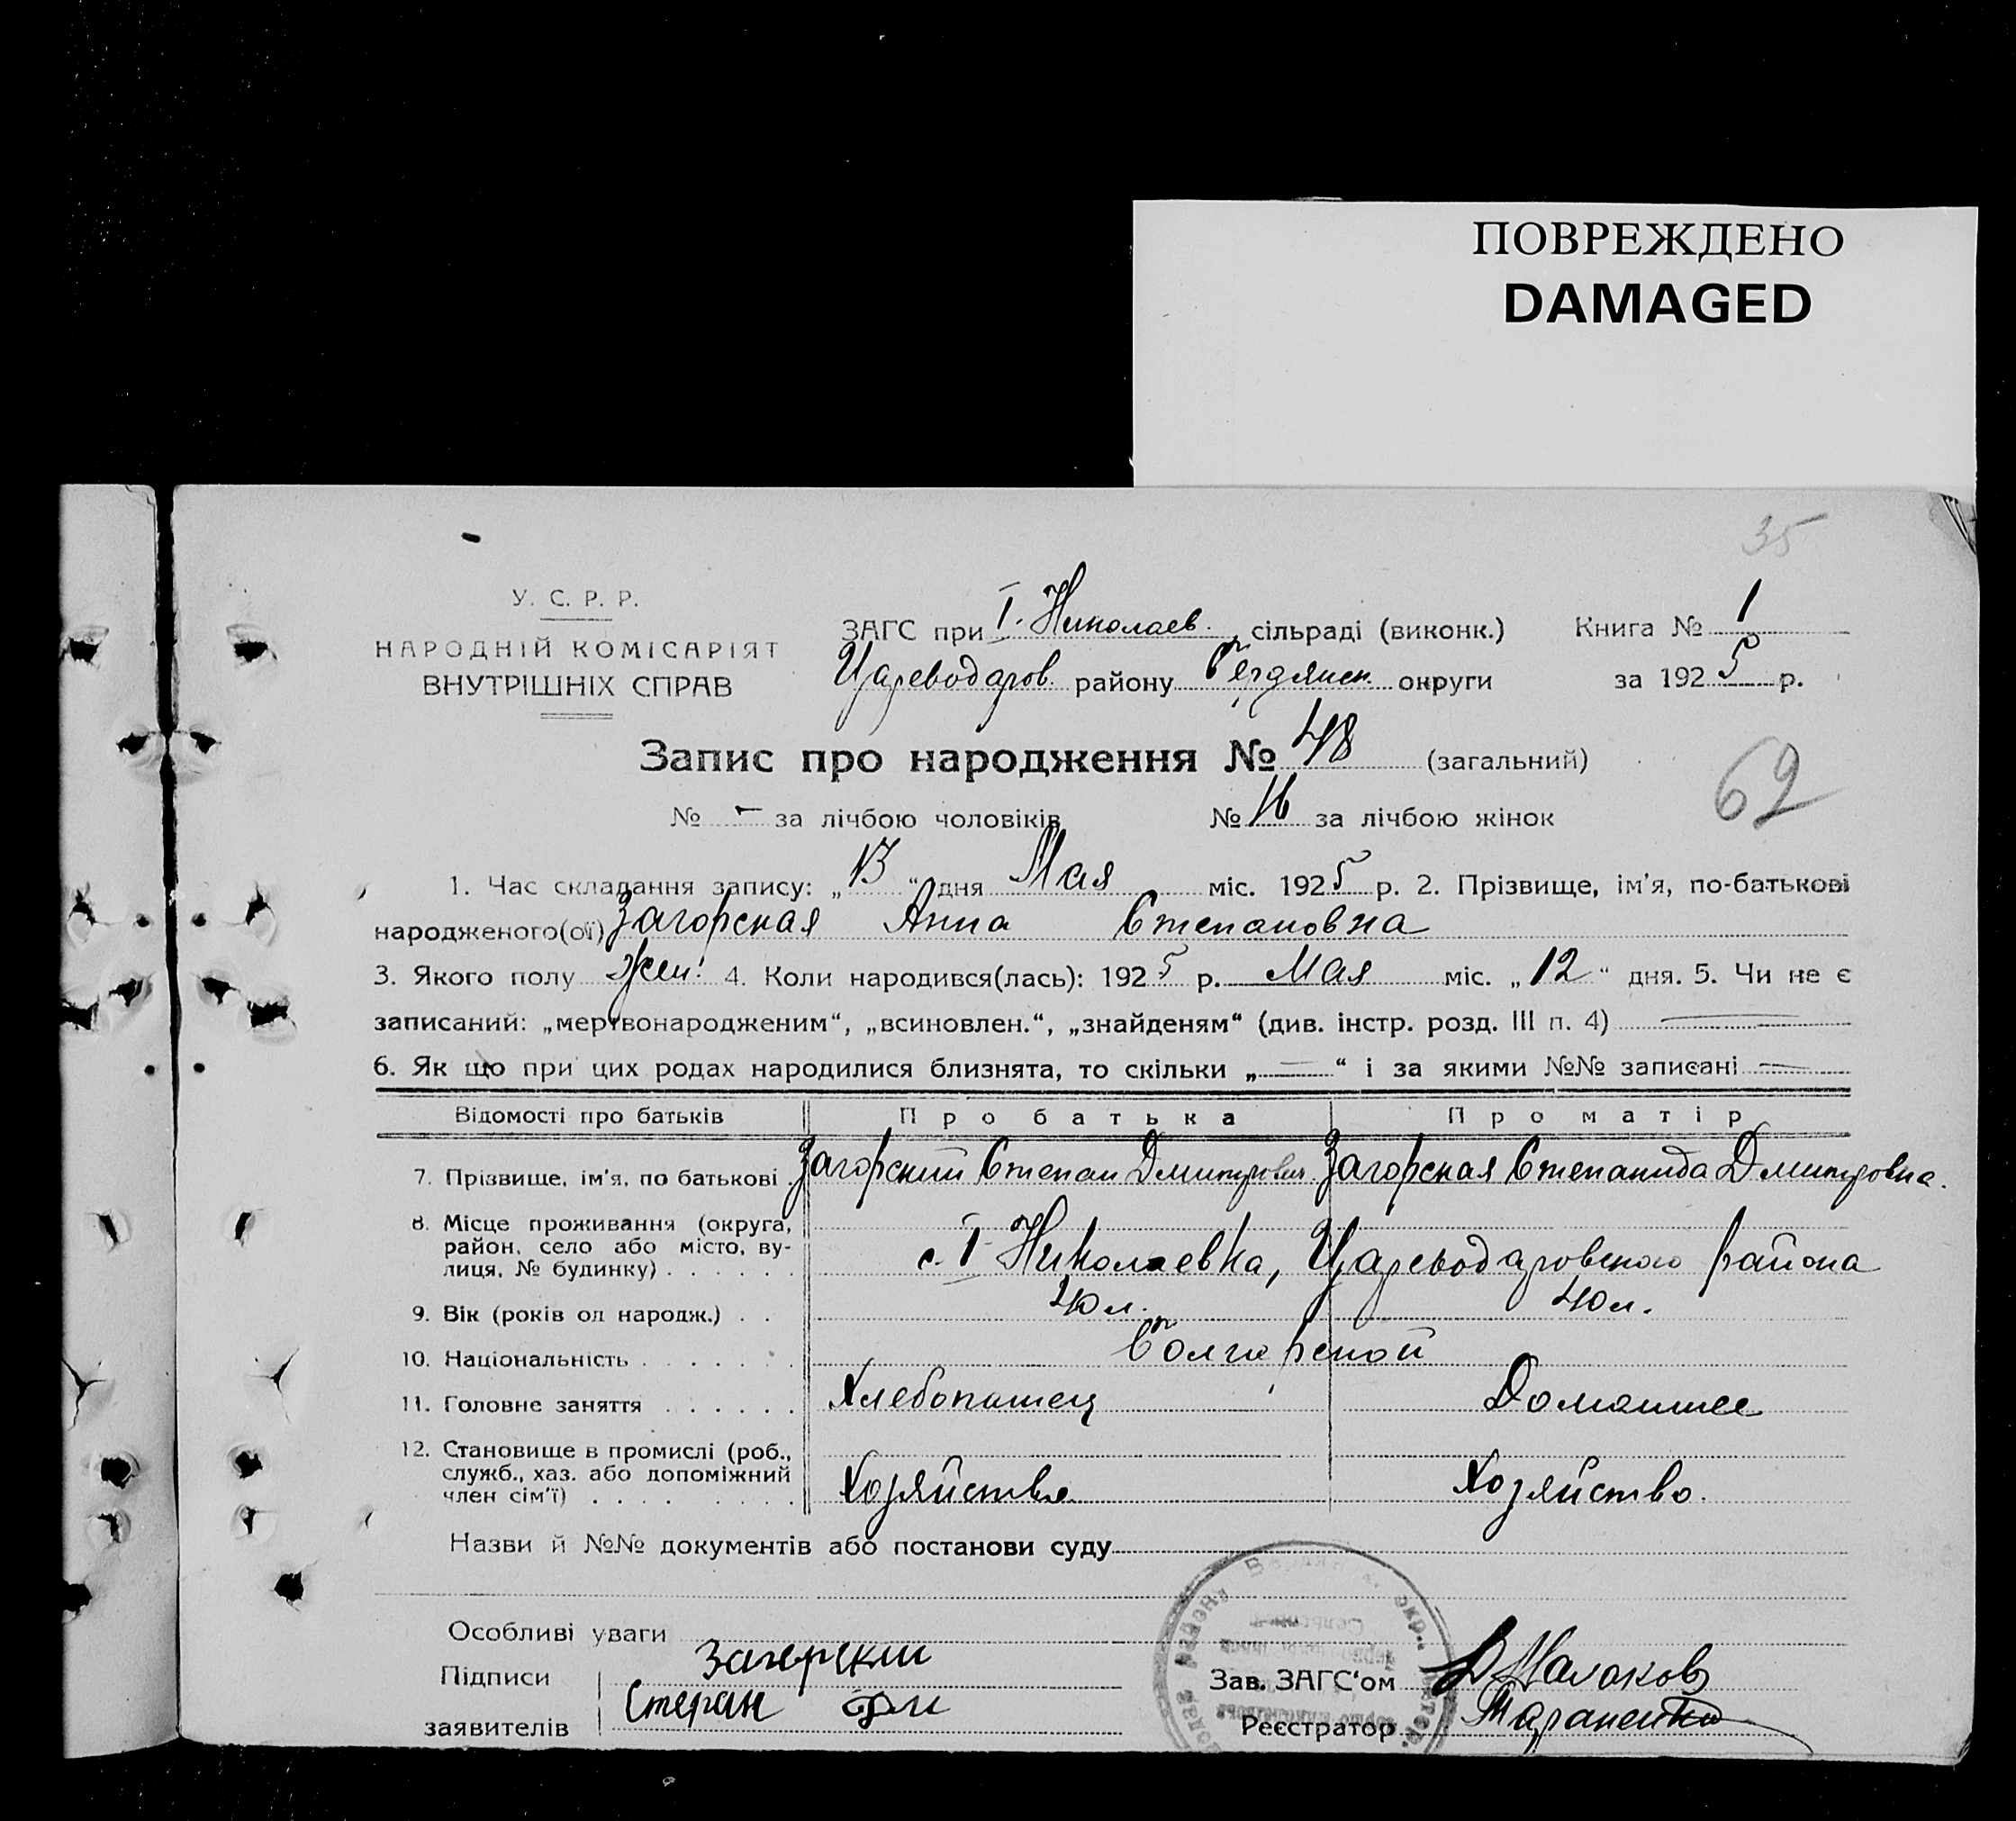 ПОВРЕЖДЕНО
DAMAGED
35
У. С. Р. Р.
НАРОДНІЙ КОМІСАРІЯТ
ВНУТРІШНІХ СПРАВ
ЗАГС при І. Николаев. сільраді (виконк.) Книга № 1
Цареводаров. району Бердянск. округи за 1925 р.
Запис про народження № 48 (загальний)
62
№ - за лічбою чоловіків № 16 за лічбою жінок
1. Час складання запису: „13“ дня Мая міс. 1925 р. 2. Прізвище, ім'я, по-батькові
народженого(ої) Загорская Анна Степановна
3. Якого полу жен. 4. Коли народився(лась): 1925 р. Мая міс. „12“ дня. 5. Чи не є
записаний: „мертвонародженим“, „всиновлен.“, „знайденям“ (див. інстр. розд. III п. 4) —
6. Як що при цих родах народилися близнята, то скільки „—“ і за якими №№ записані —
Відомості про батьків Про батька Про матір
7. Прізвище, ім'я, по батькові Загорский Степан Дмитрович Загорская Степанида Дмитровна.
8. Місце проживання (округа,
район, село або місто, ву-
лиця, № будинку) . . . . . . с. І Николаевка, Цареводаровского района
9. Вік (років од народж.) . . 40 л. 40 л.
10. Національність . . . . . . . Болгарской
11. Головне заняття . . . . . . Хлебопашец Домашнее
12. Становище в промислі (роб.,
служб., хаз. або допоміжний
член сім'ї) . . . . . . . . Хозяйства Хозяйство.
Назви й №№ документів або постанови суду
Особливі уваги
Підписи Загорский
заявителів Степан
Зав. ЗАГС'ом
Реєстратор Тараненко